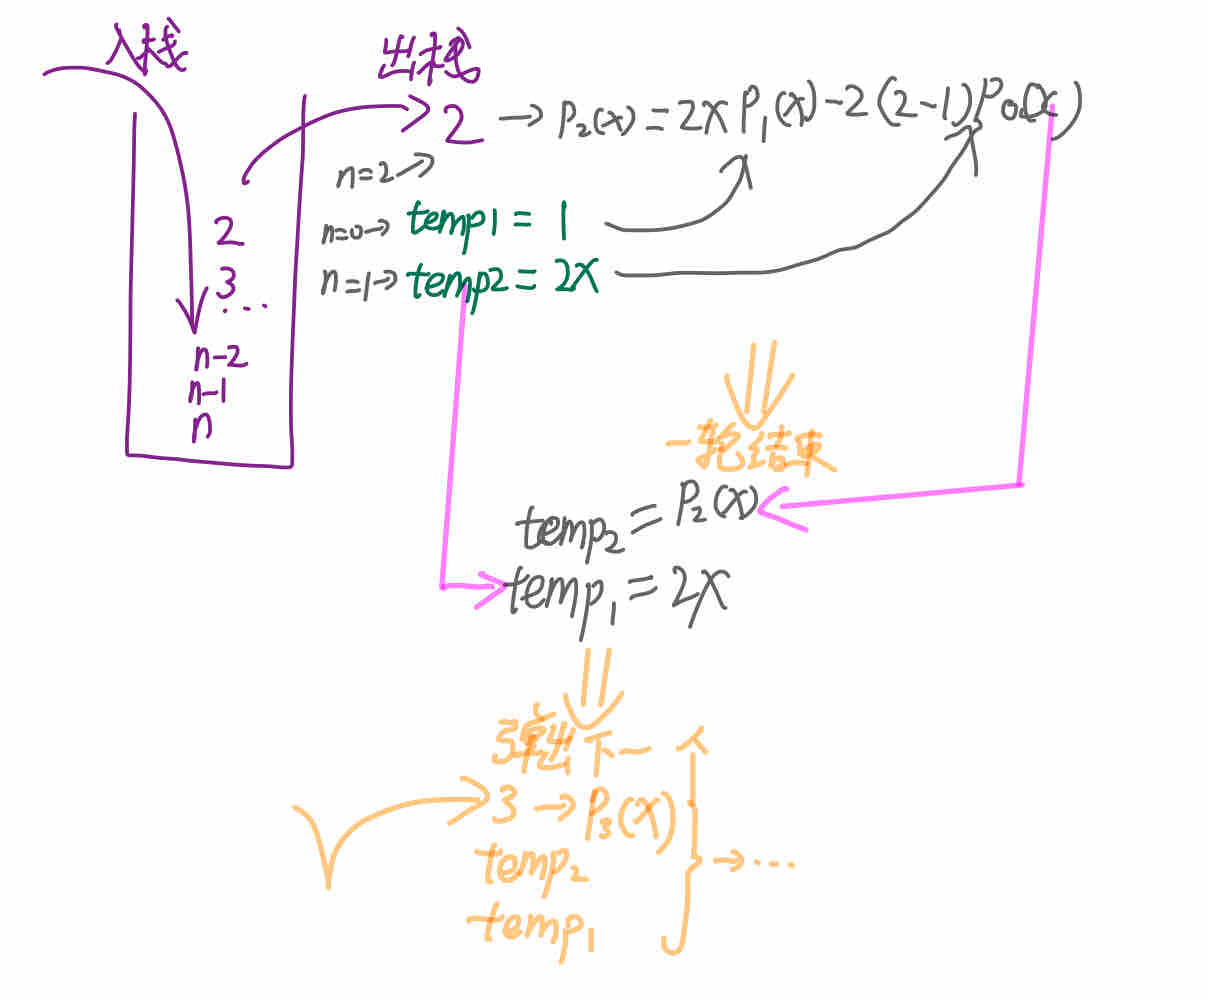 入栈
出栈
2 → P₂(x) = 2x P₁(x) - 2(2-1) P₀(x)
n=2 →
n=0 → temp1 = 1
n=1 → temp2 = 2x
2
3
...
n-2
n-1
n
一轮结束
temp₂ = P₂(x)
temp₁ = 2x
弹出下一个
3 → P₃(x)
temp₂
temp₁
→ ...